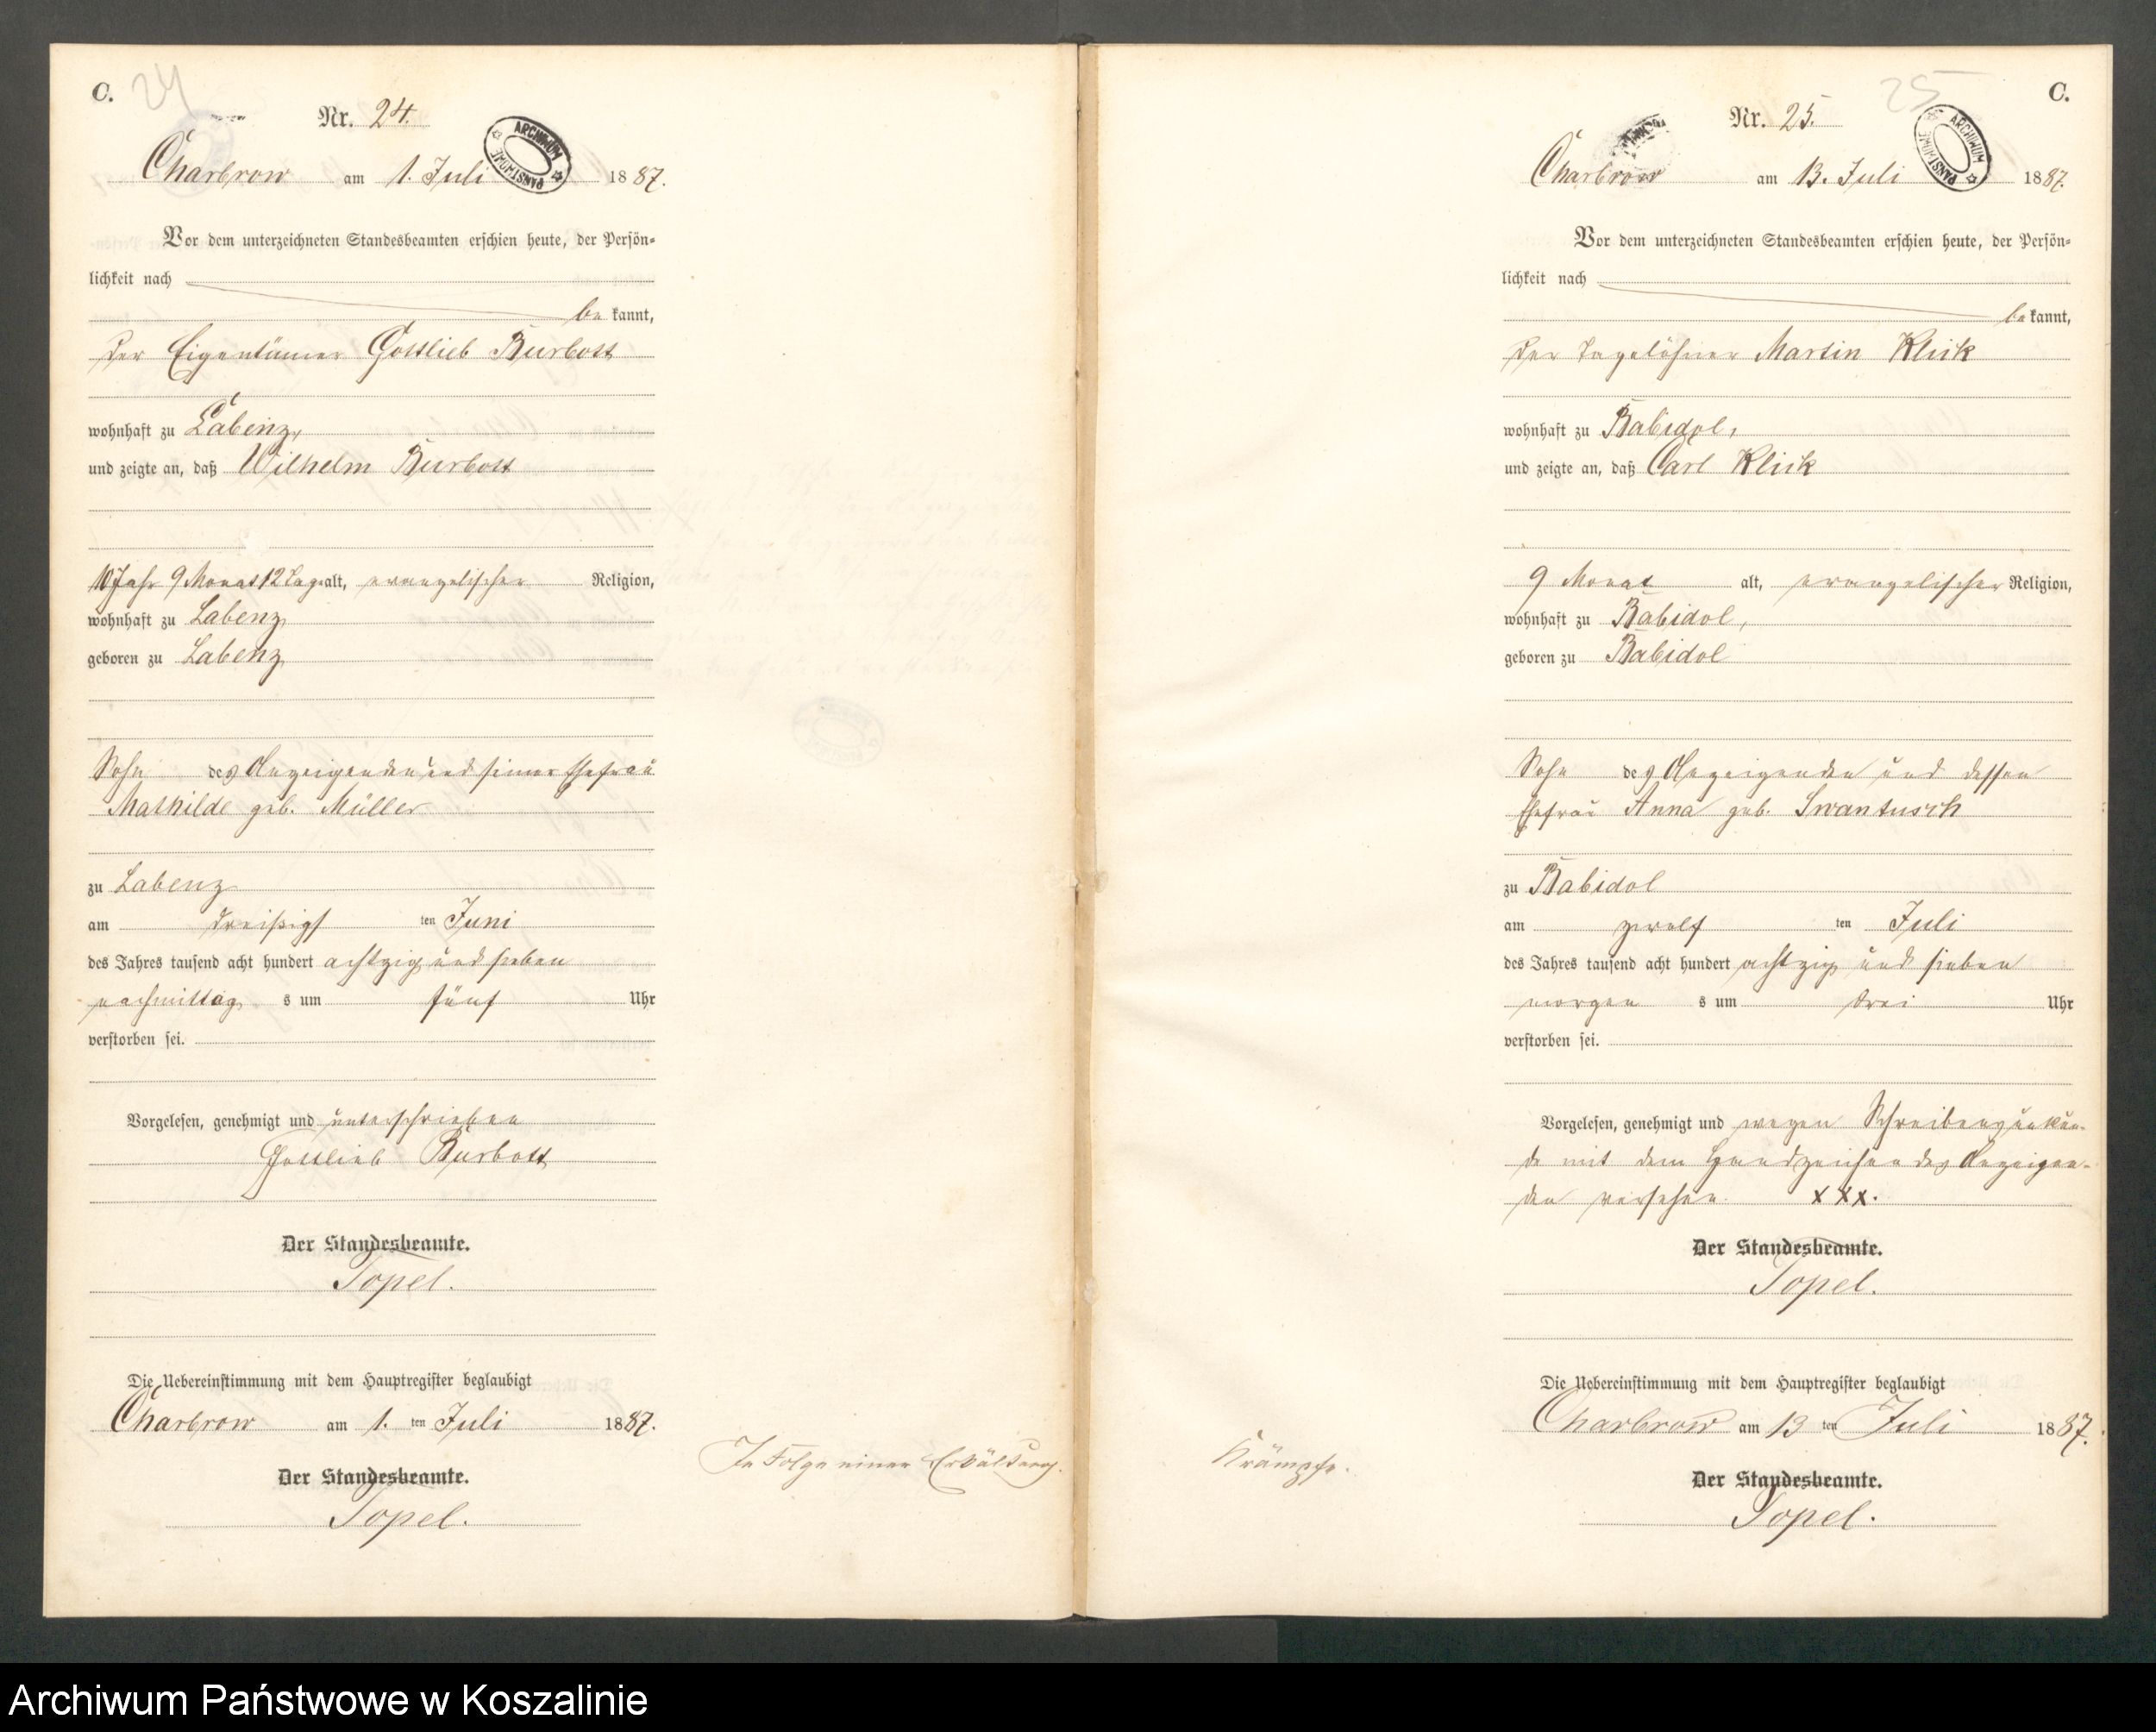 C.
24
Nr. 24.
ARCHIWUM PAŃSTWOWE
Charbrow am 1. Juli 1887.
Vor dem unterzeichneten Standesbeamten erschien heute, der Persön-
lichkeit nach
be kannt,
der Eigentümer Gottlieb Burbott
wohnhaft zu Labenz,
und zeigte an, daß Wilhelm Burbott
10 Jahr 9 Monat 12 Tage alt, evangelischer Religion,
wohnhaft zu Labenz
geboren zu Labenz
Sohn des Anzeigenden und seiner Ehefrau
Mathilde geb. Müller
zu Labenz
am dreißigs ten Juni
des Jahres tausend acht hundert achtzig und sieben
nachmittag s um fünf Uhr
verstorben sei.
Vorgelesen, genehmigt und unterschrieben
Gottlieb Burbott
Der Standesbeamte.
Topel.
Die Uebereinstimmung mit dem Hauptregister beglaubigt
Charbrow am 1. ten Juli 1887.
Der Standesbeamte.
Topel.
In Folge einer Erkältung.
25
C.
Nr. 25.
ARCHIWUM PAŃSTWOWE
Charbrow am 13. Juli 1887.
Vor dem unterzeichneten Standesbeamten erschien heute, der Persön-
lichkeit nach
be kannt,
der Tagelöhner Martin Klick
wohnhaft zu Babidol,
und zeigte an, daß Carl Klick
9 Monat alt, evangelischer Religion,
wohnhaft zu Babidol,
geboren zu Babidol
Sohn des Anzeigenden und dessen
Ehefrau Anna geb. Swantusch
zu Babidol
am zwölf ten Juli
des Jahres tausend acht hundert achtzig und sieben
morgen s um drei Uhr
verstorben sei.
Vorgelesen, genehmigt und wegen Schreibensunkun-
de mit dem Handzeichen des Anzeigen-
den versehen. XXX.
Der Standesbeamte.
Topel.
Die Uebereinstimmung mit dem Hauptregister beglaubigt
Charbrow am 13 ten Juli 1887.
Der Standesbeamte.
Topel.
Krämpfe.
Archiwum Państwowe w Koszalinie